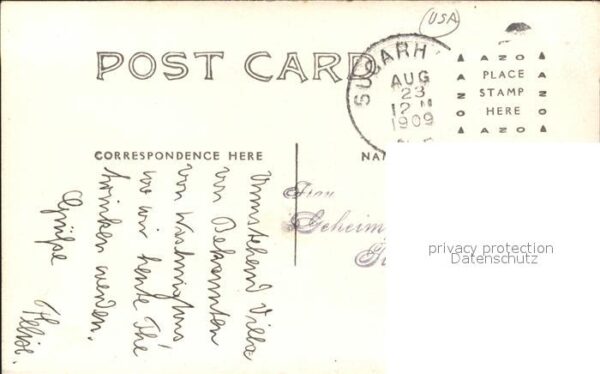 (USA)
POST CARD
SUGARH
AUG
23
12 M
1909
AZO
PLACE
STAMP
HERE
AZO
CORRESPONDENCE HERE
NA
Umstehend Villa
von Bekannten
von Washingtons
wo wir heute Thé
trinken werden.
Grüße
Frau
Geheim
privacy protection
Datenschutz